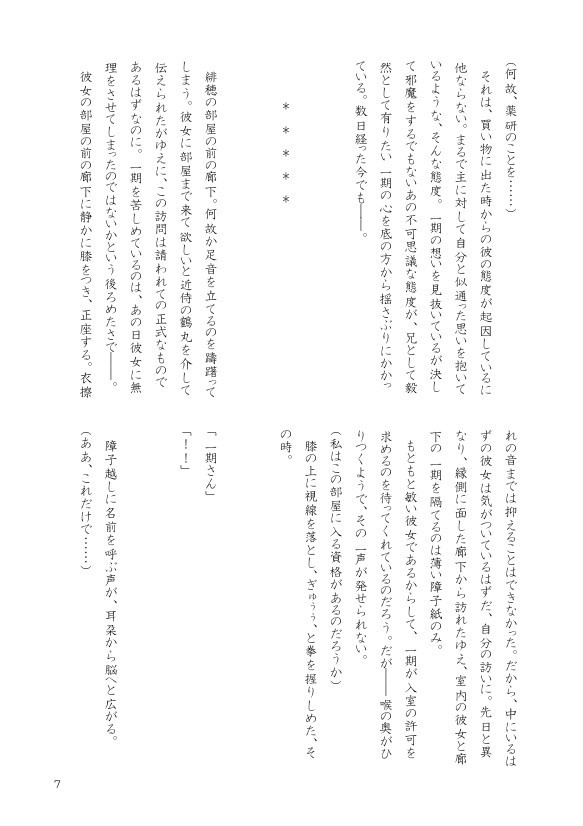 (何故、薬研のことを……)
　それは、買い物に出た時からの彼の態度が起因しているに
他ならない。まるで主に対して自分と似通った思いを抱いて
いるような、そんな態度。一期の想いを見抜いているが決し
て邪魔をするでもないあの不可思議な態度が、兄として毅
然として有りたい一期の心を底の方から揺さぶりにかかっ
ている。数日経った今でも――。
＊　＊　＊　＊　＊
　緋穂の部屋の前の廊下。何故か足音を立てるのを躊躇って
しまう。彼女に部屋まで来て欲しいと近侍の鶴丸を介して
伝えられたがゆえに、この訪問は請われての正式なもので
あるはずなのに。一期を苦しめているのは、あの日彼女に無
理をさせてしまったのではないかという後ろめたさで――。
　彼女の部屋の前の廊下に静かに膝をつき、正座する。衣擦
れの音までは抑えることはできなかった。だから、中にいるは
ずの彼女は気がついているはずだ、自分の訪いに。先日と異
なり、縁側に面した廊下から訪れたゆえ、室内の彼女と廊
下の一期を隔てるのは薄い障子紙のみ。
　もともと敏い彼女であるからして、一期が入室の許可を
求めるのを待ってくれているのだろう。だが――喉の奥がひ
りつくようで、その一声が発せられない。
(私はこの部屋に入る資格があるのだろうか)
　膝の上に視線を落とし、ぎゅぅぅ、と拳を握りしめた、そ
の時。
「一期さん」
「！！」
　障子越しに名前を呼ぶ声が、耳朶から脳へと広がる。
(ああ、これだけで……)
7